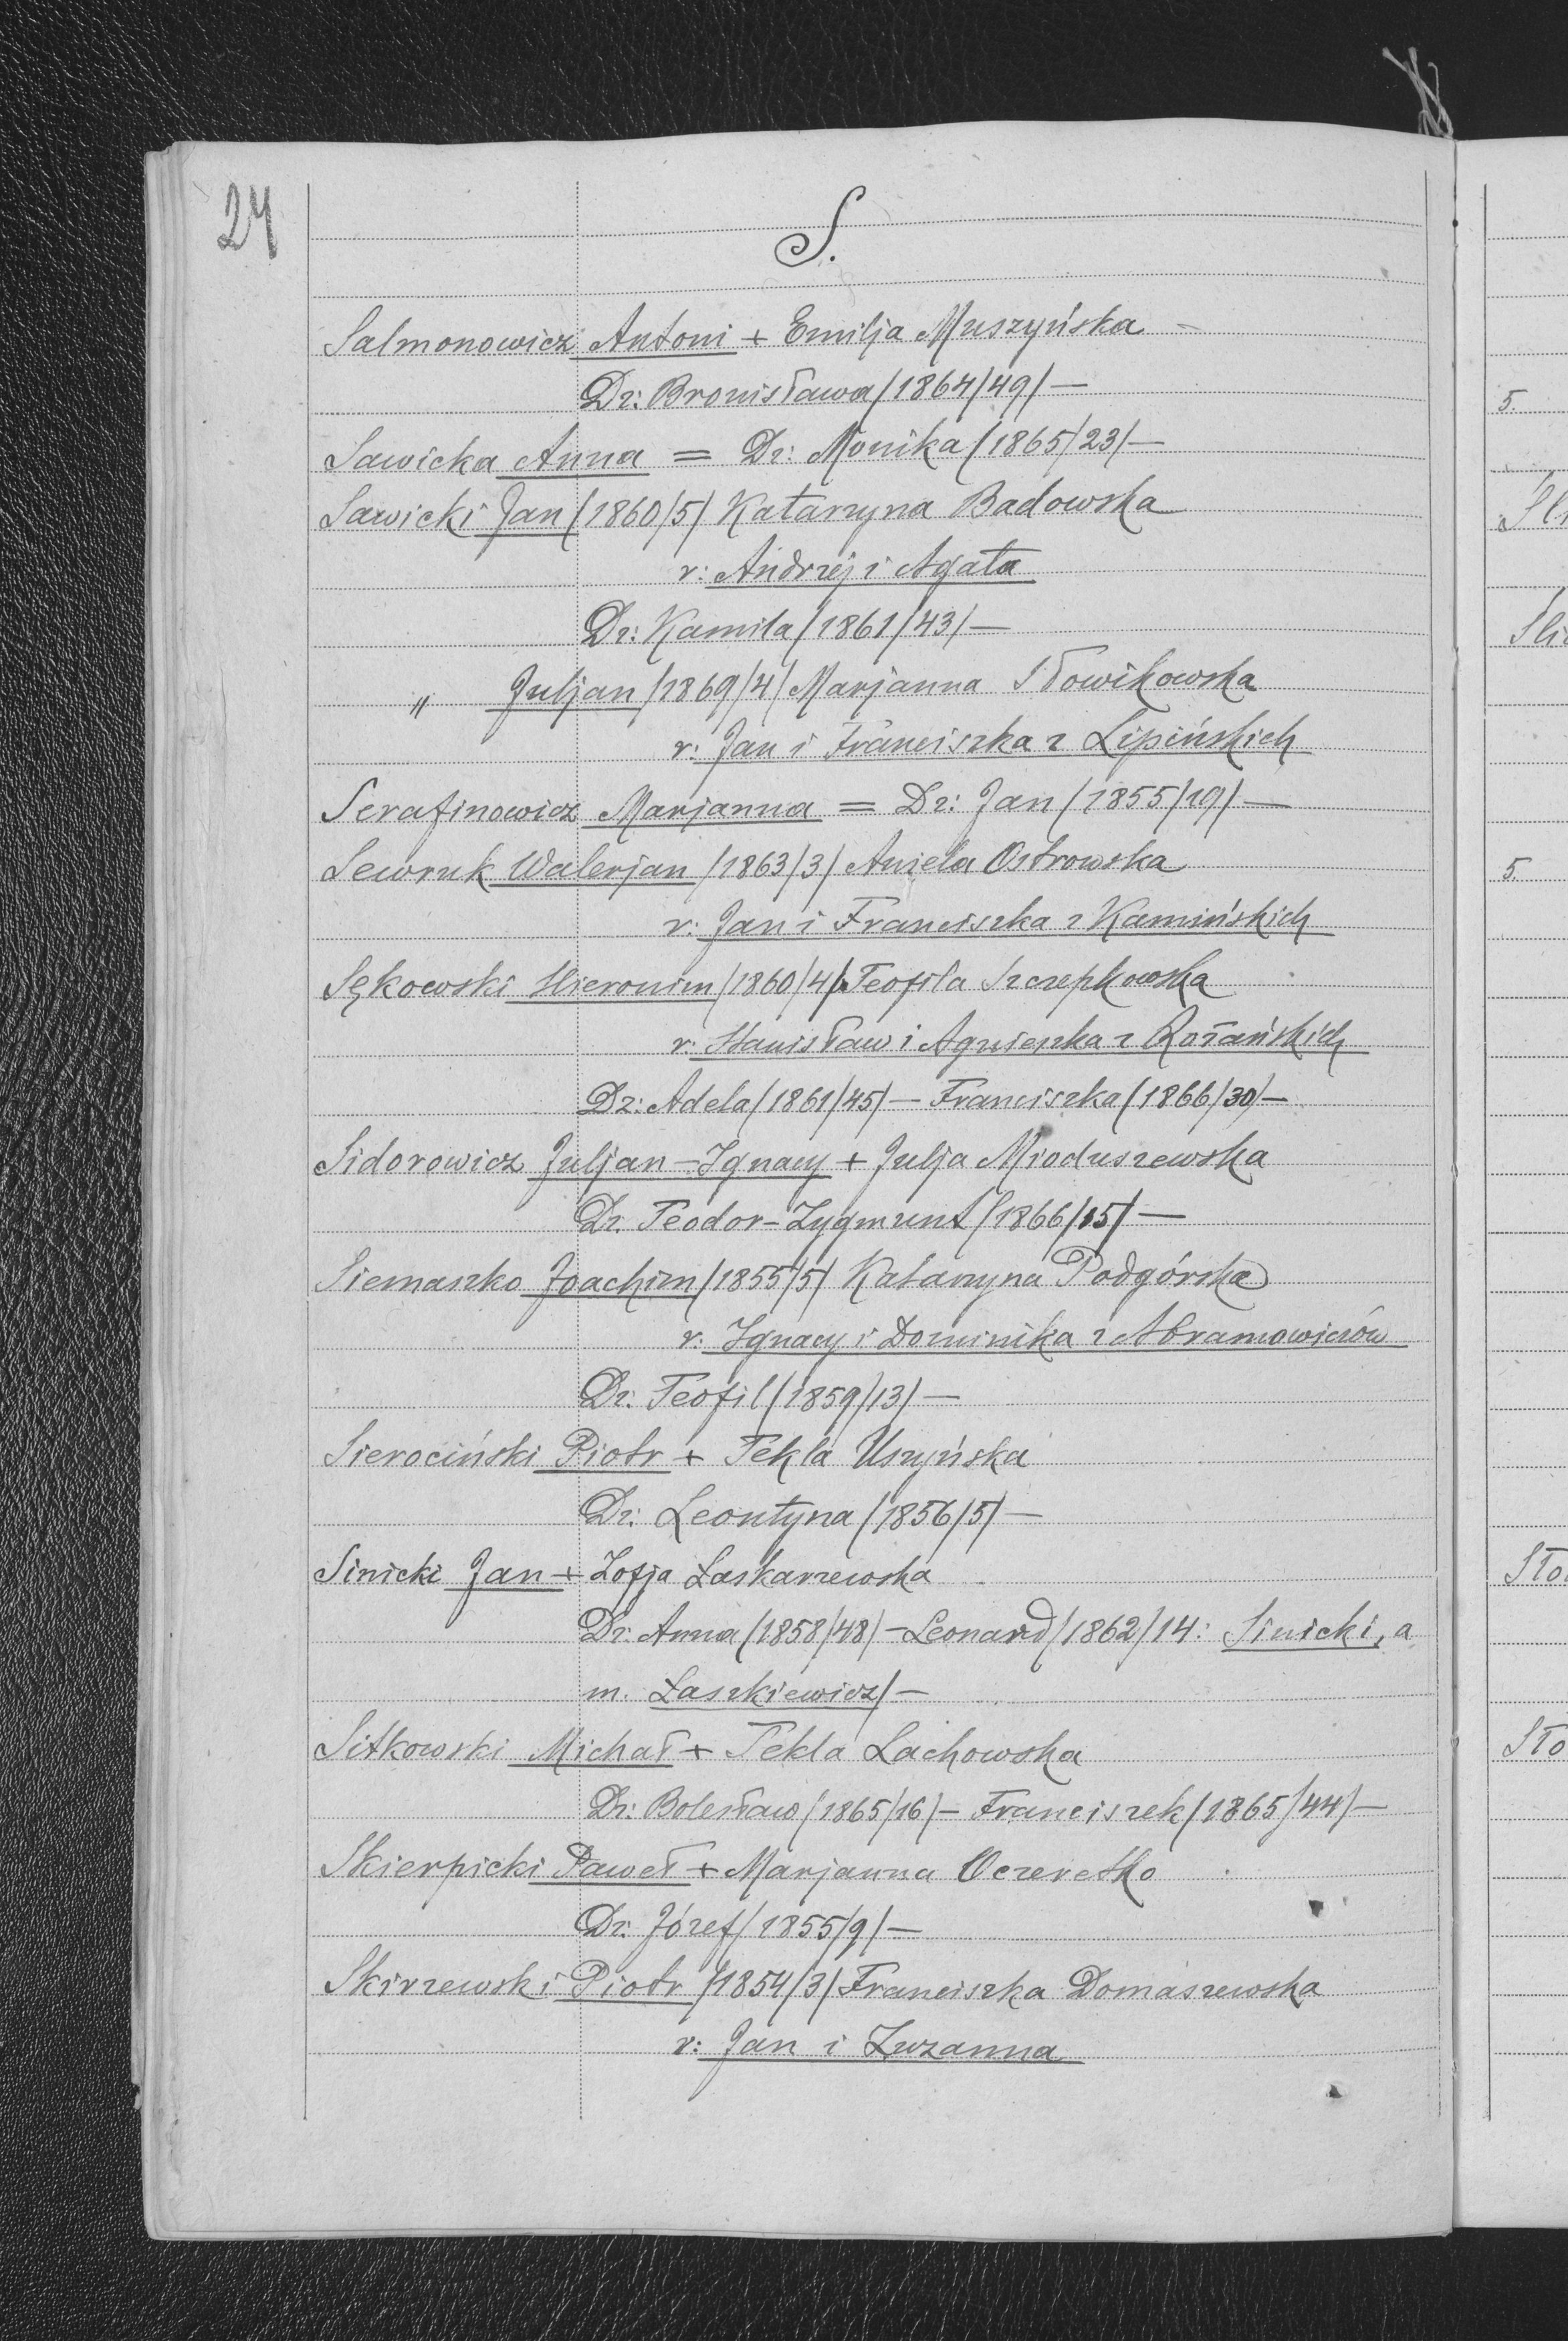 24
S.
Salmonowicz Antoni + Emilja Muszyńska –
Dz: Bronisława /1864/49/ —
Sawicka Anna = Dz: Monika /1865/23/ —
Sawicki Jan /1860/5/ Katarzyna Badowska
r: Andrzej i Agata
Dz: Kamila /1861/43/ —
" Juljan /1869/4/ Marjanna Słowikowska
r: Jan i Franciszka z Lipińskich
Serafinowicz Marjanna = Dz: Jan /1855/19/ —
Sewruk Walerjan /1863/3/ Aniela Ostrowska
r: Jan i Franciszka z Kamińskich
Sękowski Hieronim /1860/4/ Teofila Szczepkowska
r: Stanisław i Agnieszka z Rożańskich
Dz: Adela /1861/45/ — Franciszka /1866/30/ —
Sidorowicz Juljan – Ignacy + Julja Mioduszewska
Dz. Teodor – Zygmunt /1866/15/ —
Siemaszko Joachim /1855/5/ Katarzyna Podgórska
r: Ignacy i Dominika z Abramowiczów
Dz: Teofil /1859/13/ —
Sierociński Piotr + Tekla Uszyńska
Dz: Leontyna /1856/5/ —
Sinicki Jan + Zofja Łaskarzewska
Dz: Anna /1858/48/ – Leonard /1862/14: Sinicki, a
m. Łaszkiewicz/ —
Sitkowski Michał + Tekla Lachowska
Dz: Bolesław /1865/16/ – Franciszek /1865/44/ —
Skierpicki Paweł + Marjanna Oczeretko
Dz: Józef /1855/9/ —
Skirzewski Piotr /1854/3/ Franciszka Domaszewska
r: Jan i Zuzanna
5.
5.